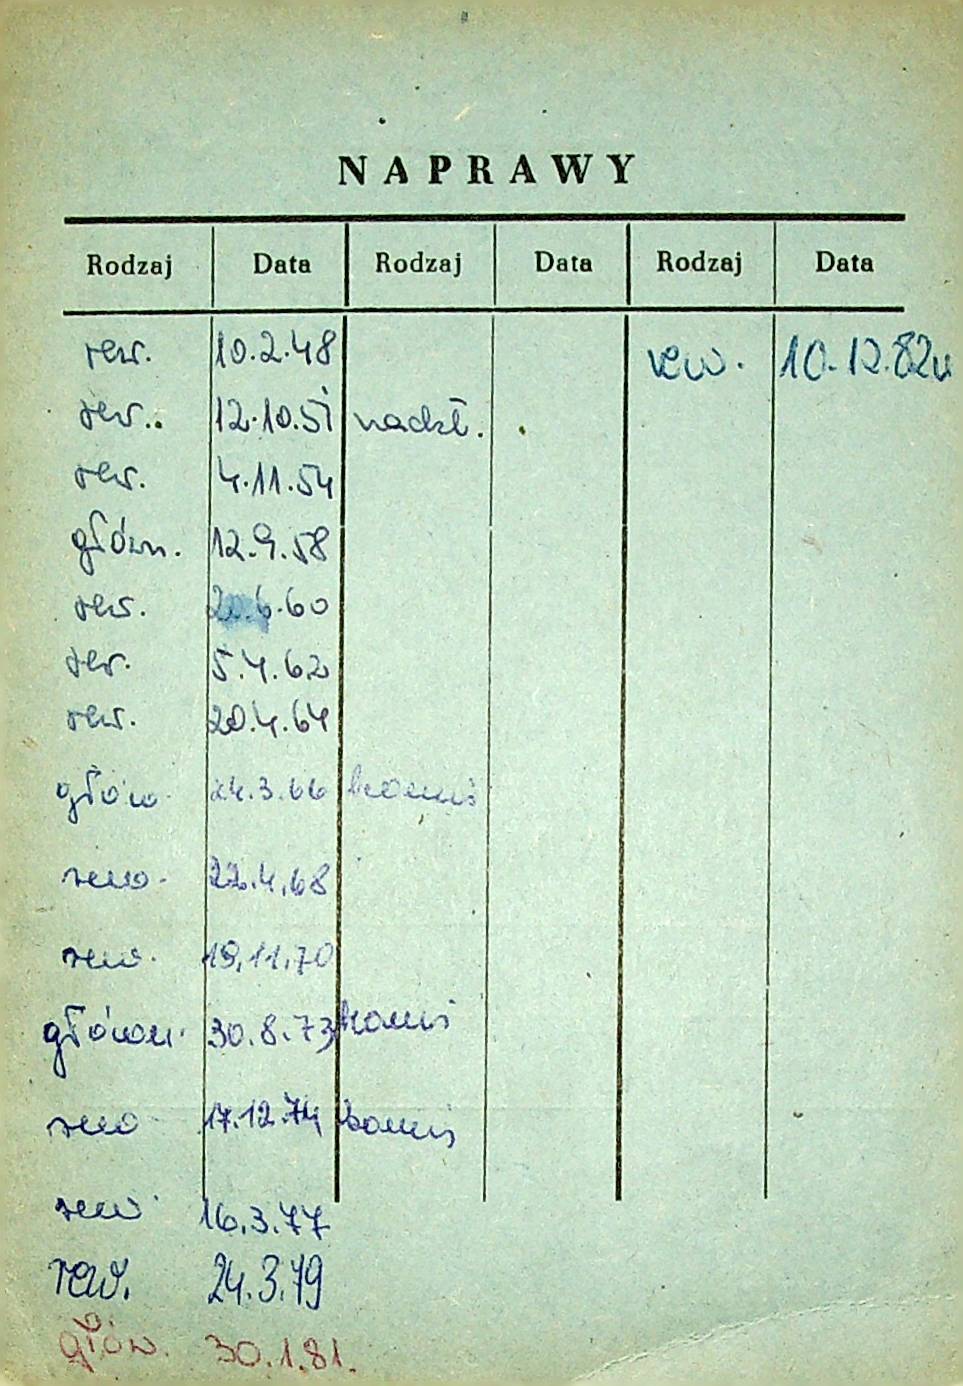 NAPRAWY
Rodzaj Data Rodzaj Data Rodzaj Data
rew. 10.2.48 rew. 10.12.82
rew.. 12.10.51 nadzł.
rew. 4.11.54
główn. 12.9.58
rew. 20.6.60
rew. 5.4.62
rew. 20.4.64
głów. 24.3.66
rew. 22.4.68
rew. 19.11.70
główn. 30.8.73
rew 17.12.74
rew 16.3.77
rew. 24.3.79
głów. 30.1.81.